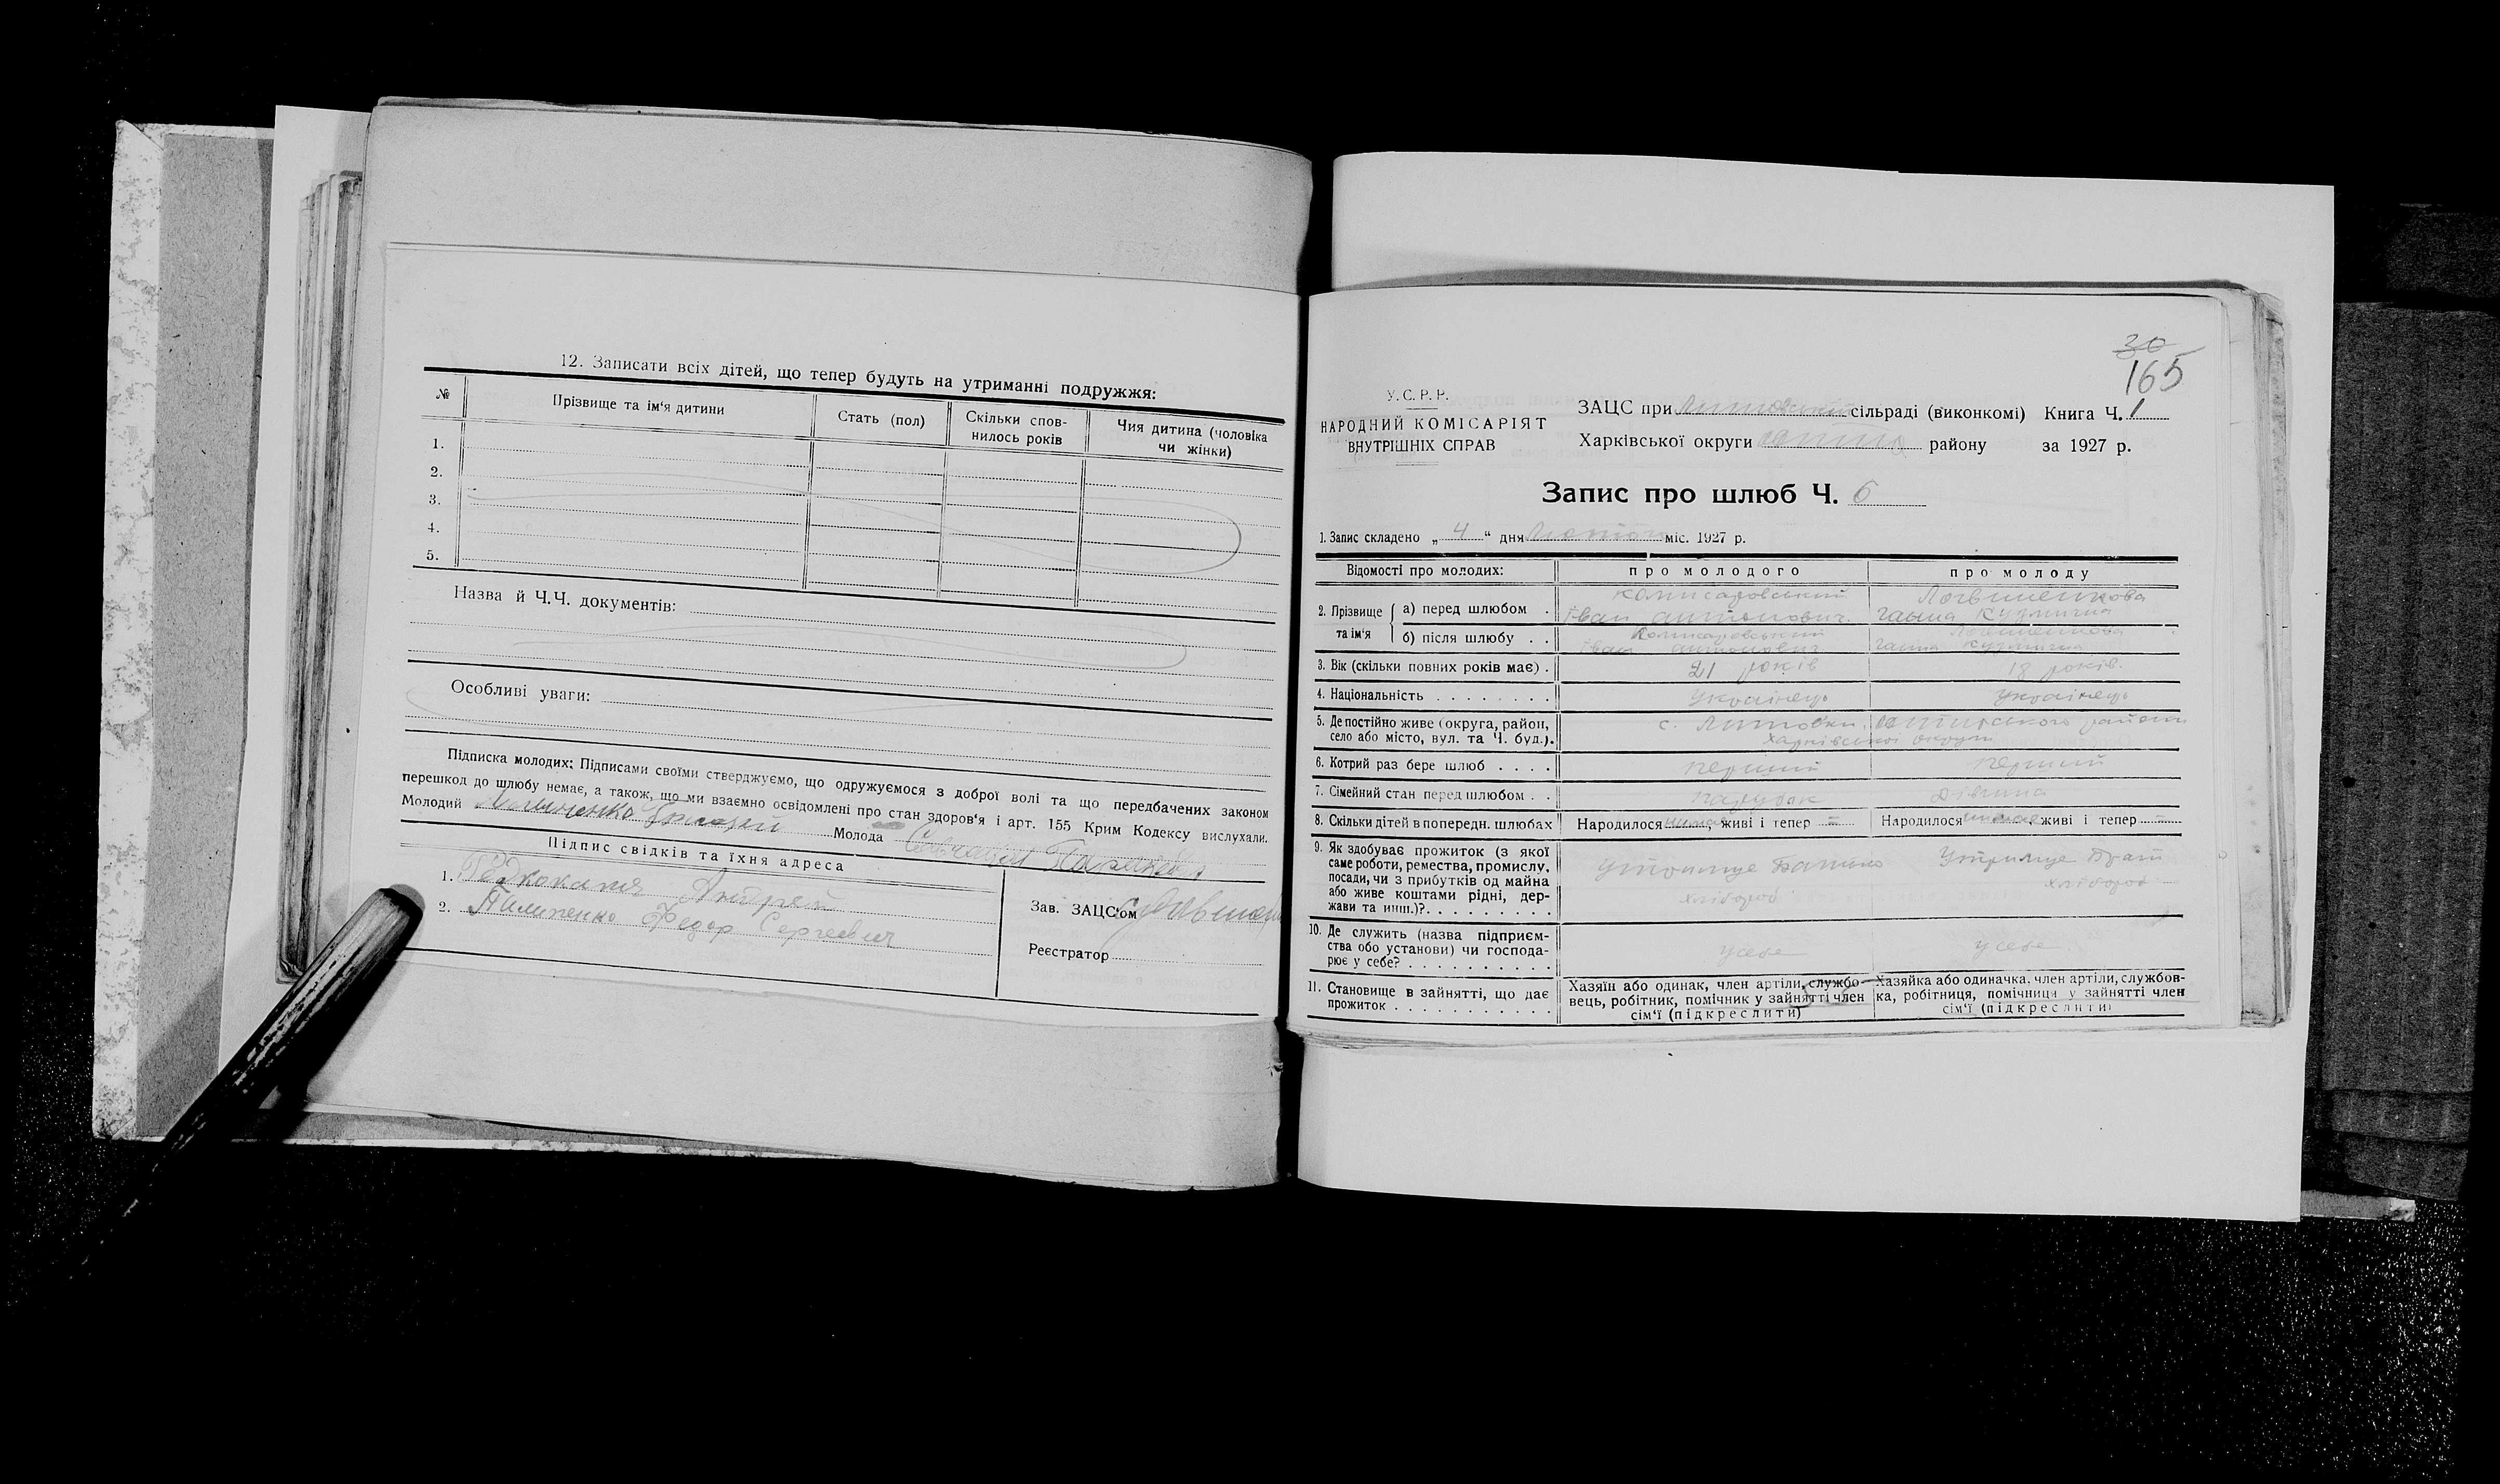 12. Записати всіх дітей, що тепер будуть на утриманні подружжя:
№ Прізвище та ім'я дитини Стать (пол) Скільки спов-нилось років Чия дитина (чоловіка чи жінки)
1.
2.
3.
4.
5.
Назва й Ч.Ч. документів:
Особливі уваги:
Підписка молодих: Підписами своїми стверджуємо, що одружуємося з доброї волі та що передбачених законом
перешкод до шлюбу немає, а також, що ми взаємно освідомлені про стан здоров'я і арт. 155 Крим Кодексу вислухали.
Молодий Молода
Підпис свідків та їхня адреса
1. Андрей
2. Пилипенко Федор Сергеевич
Зав. ЗАЦС'ом
Реєстратор
30
165
У.С.Р.Р.
НАРОДНИЙ КОМІСАРІЯТ
ВНУТРІШНІХ СПРАВ
ЗАЦС при сільраді (виконкомі) Книга Ч. 1
Харківської округи району за 1927 р.
Запис про шлюб Ч. 6
1. Запис складено „ 4 “ дня міс. 1927 р.
Відомості про молодих: про молодого про молоду
2. Прізвище та ім'я
а) перед шлюбом . Комисаровський Логвиненкова
Іван Антонович Ганна Кузмична
б) після шлюбу . . Комисаровський Логвиненкова
Іван Антонович Ганна Кузмична
3. Вік (скільки повних років має) . 21 років 18 років.
4. Національність . . . . . . . . Українець Українець
5. Де постійно живе (округа, район, с. району
село або місто, вул. та Ч. буд.). Харківської округи
6. Котрий раз бере шлюб . . . . перший перший
7. Сімейний стан перед шлюбом . . парубок дівчина
8. Скільки дітей в попередн. шлюбах Народилося нима, живі і тепер = Народилося нимае, живі і тепер =
9. Як здобуває прожиток (з якої
саме роботи, ремества, промислу,
посади, чи з прибутків од майна
або живе коштами рідні, дер-
жави та инш.)?. . . . . . . . . .
Утримує Батько
хлібороб
Утримує Брат
хлібороб
10. Де служить (назва підприєм-
ства обо установи) чи господа-
рює у себе? . . . . . . . . . .
у себе у себе
11. Становище в зайнятті, що дає
прожиток . . . . . . . . . . . .
Хазяїн або одинак, член артіли, службо-
вець, робітник, помічник у зайнятті член
сім'ї (підкреслити)
Хазяйка або одиначка, член артіли, службов-
ка, робітниця, помічниця у зайнятті член
сім'ї (підкреслити)